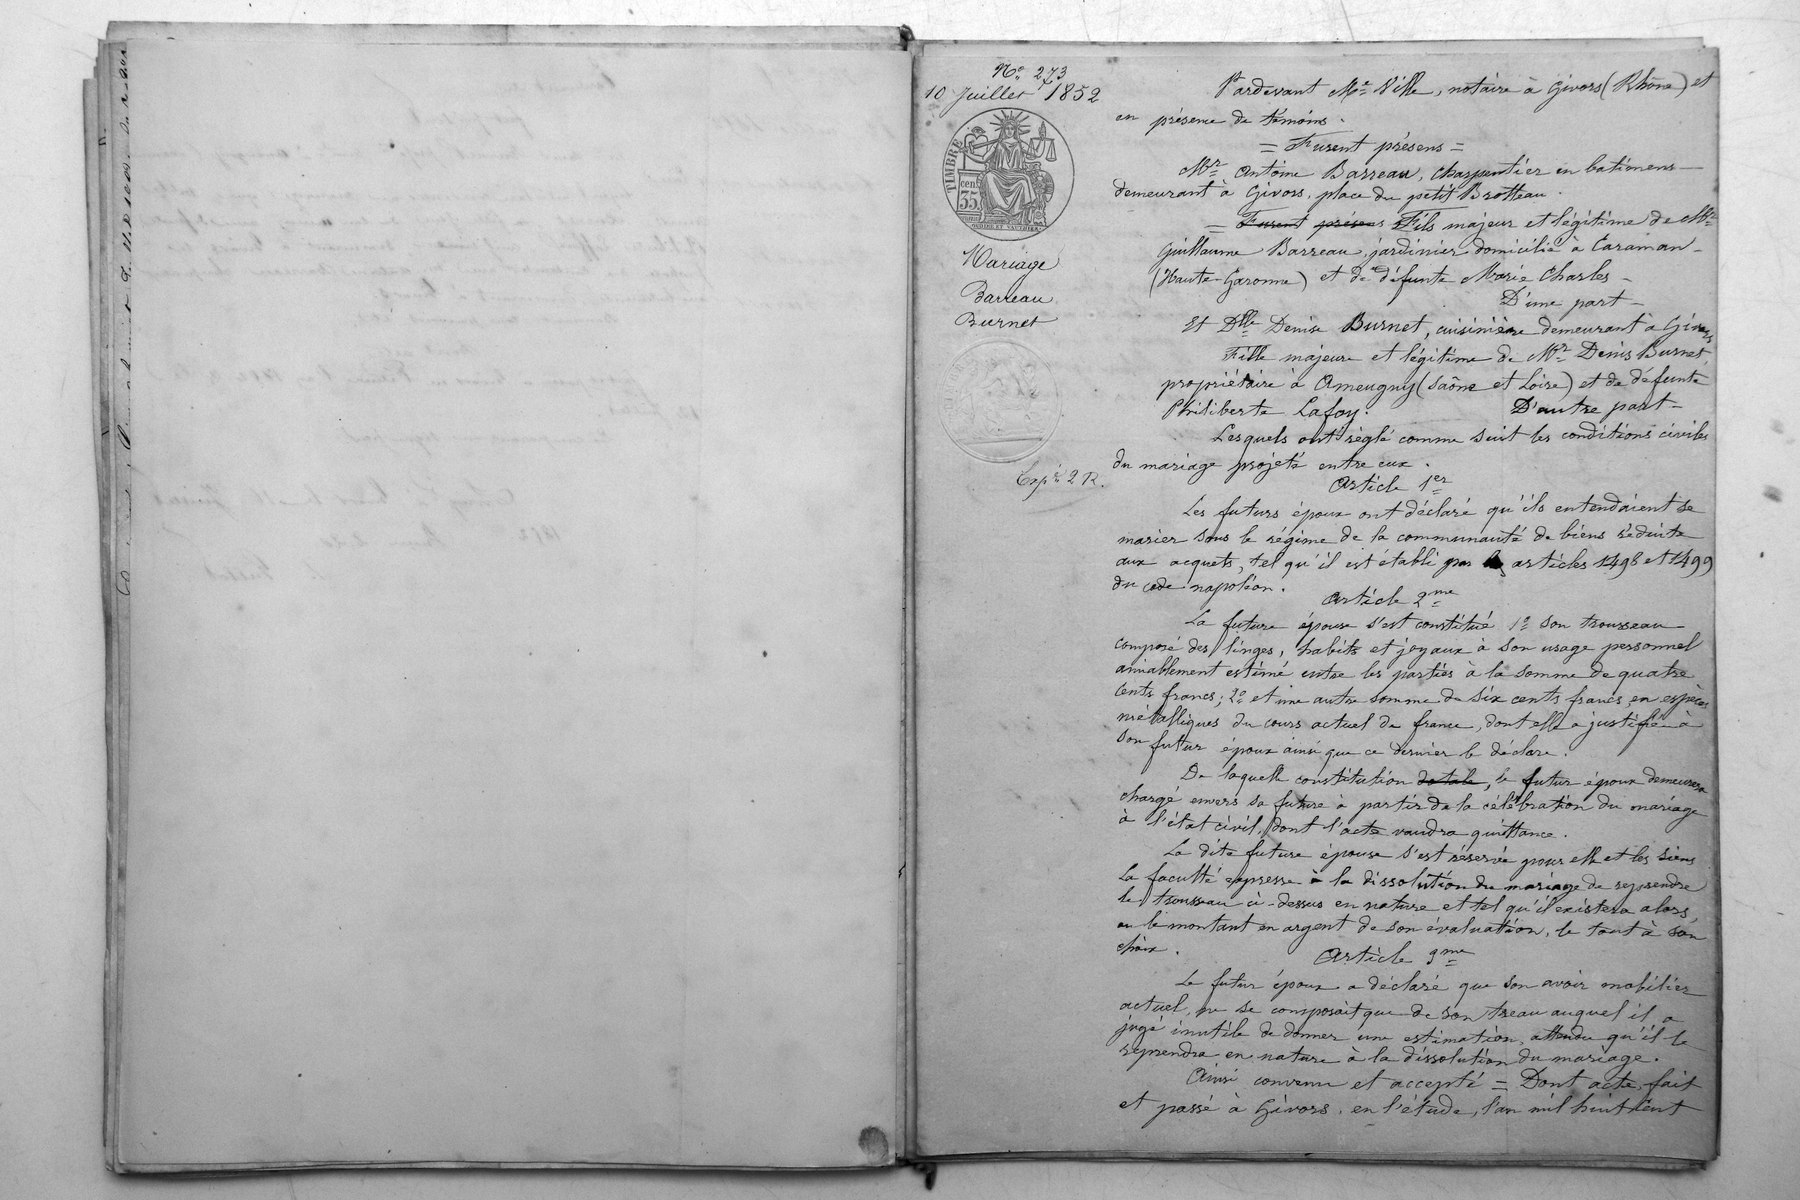 N.o 273
10 Juillet 1852
TIMBRE
cen.
35
Mariage
Barreau
Burnet
Exp.é 2 R.
Pardevant Me Ville, notaire à Givors (Rhône) et
en présence de témoins.
= Furent présens =
Mr. Antoine Barreau, charpentier en batimens
demeurant à Givors, place du petit Brotteau.
= Furent présens Fils majeur et légitime de Mr.
Guillaume Barreau, jardinier domicilié à Caraman
(Haute-Garonne) et de défunte Marie Charles
D'une part
Et Dlle Denise Burnet, cuisinière demeurant à Givors
Fille majeure et légitime de Mr. Denis Burnet,
propriétaire à Ameugny (Saône et Loire) et de défunte
Philiberte Lafoy. D'autre part
Lesquels ont règlé comme suit les conditions civiles
du mariage projeté entre eux.
Article 1er
Les futurs époux ont déclaré qu'ils entendaient se
marier sous le régime de la communauté de biens réduite
aux acquets, tel qu'il est établi par les articles 1498 et 1499
du code napoléon.
Article 2me
La future épouse s'est constitué 1o son trousseau
composé des linges, habits et joyaux à son usage personnel
amiablement estimé entre les parties à la somme de quatre
cents francs; 2o et une autre somme de six cents francs en espèces
métalliques du cours actuel de france, dont elle a justifié à
son futur époux ainsi que ce dernier le déclare.
De laquelle constitution dotale, le futur époux demeurera
chargé envers sa future à partir de la célébration du mariage
à l'état civil, dont l'acte vaudra quittance.
La dite future épouse s'est réservée pour elle et les siens
la faculté expresse à la dissolution du mariage de reprendre
le trousseau ci-dessus en nature et tel qu'il existera alors,
ou le montant en argent de son évaluation, le tout à son
choix.
Article 3me
Le futur époux a déclaré que son avoir mobilier
actuel, ne se composait que de son treau auquel il a
jugé inutile de donner une estimation, attendu qu'il le
reprendra en nature à la dissolution du mariage.
Ainsi convenu et accepté = Dont acte, fait
et passé à Givors, en l'étude, l'an mil huit cent